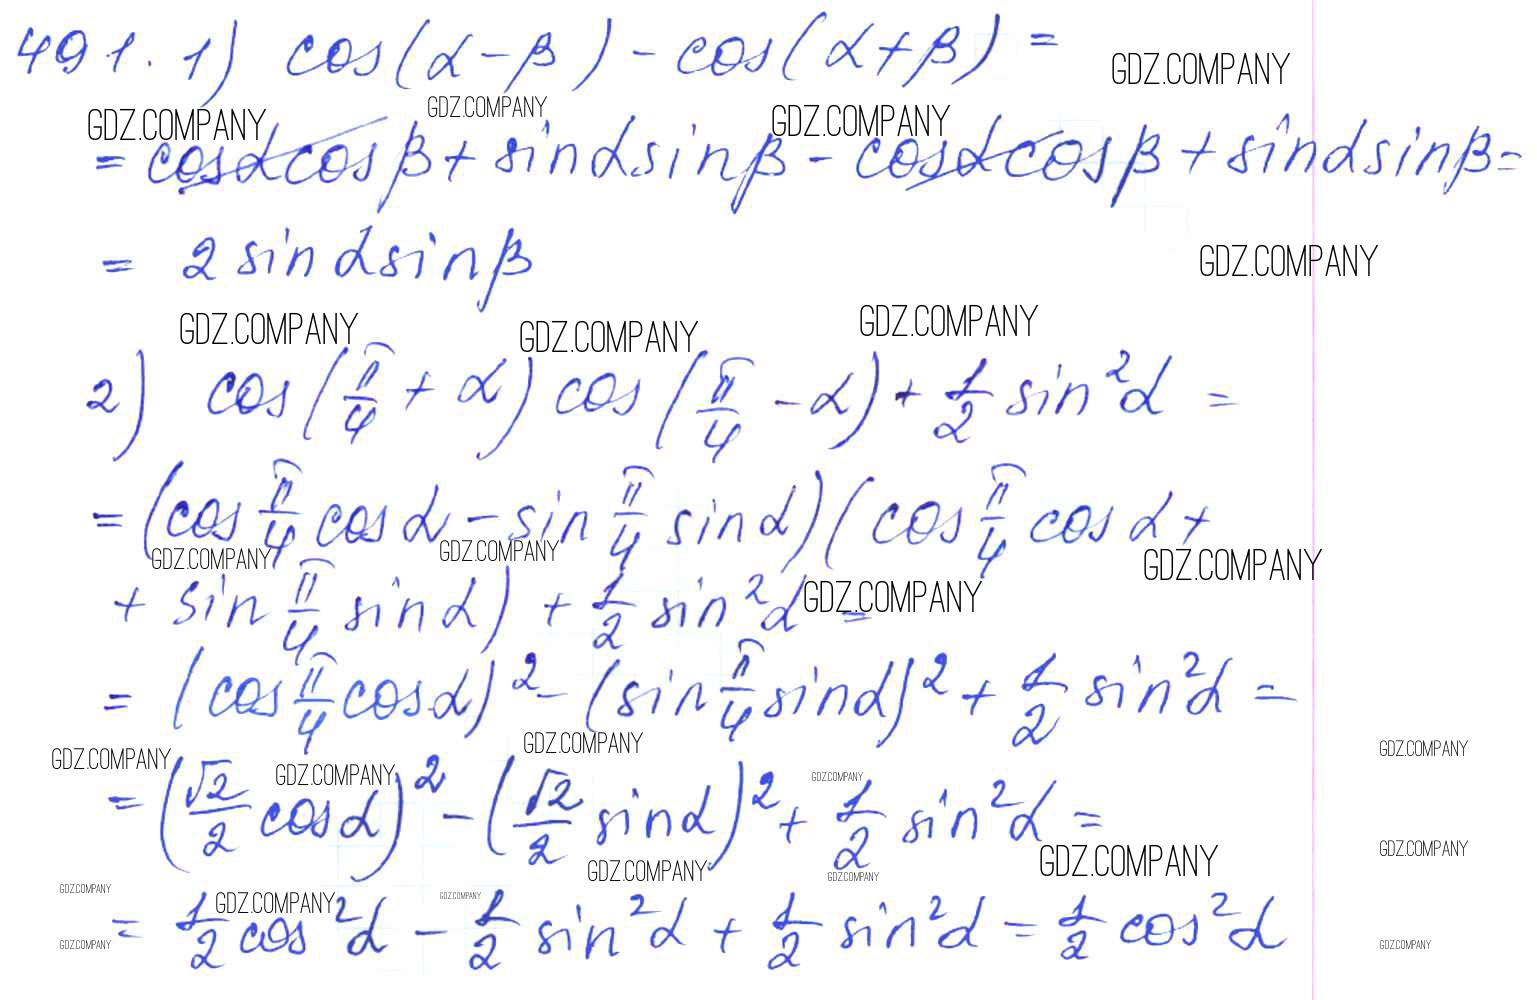 491. 1) cos(α-β)-cos(α+β)=
GDZ.COMPANY
GDZ.COMPANY
GDZ.COMPANY
GDZ.COMPANY
= cosα cosβ + sinα sinβ - cosα cosβ + sinα sinβ =
= 2 sinα sinβ
GDZ.COMPANY
GDZ.COMPANY
GDZ.COMPANY
GDZ.COMPANY
2) cos(π/4 + α) cos(π/4 - α) + 1/2 sin²α =
= (cos π/4 cos α - sin π/4 sin α)(cos π/4 cos α +
GDZ.COMPANY
GDZ.COMPANY
GDZ.COMPANY
+ sin π/4 sin α) + 1/2 sin²α =
GDZ.COMPANY
= (cos π/4 cos α)² - (sin π/4 sin α)² + 1/2 sin²α =
GDZ.COMPANY
GDZ.COMPANY
GDZ.COMPANY
GDZ.COMPANY
GDZ.COMPANY
= (√2/2 cos α)² - (√2/2 sin α)² + 1/2 sin²α =
GDZ.COMPANY
GDZ.COMPANY
GDZ.COMPANY
GDZ.COMPANY
GDZ.COMPANY
GDZ.COMPANY
GDZ.COMPANY
= 1/2 cos²α - 1/2 sin²α + 1/2 sin²α = 1/2 cos²α
GDZ.COMPANY
GDZ.COMPANY